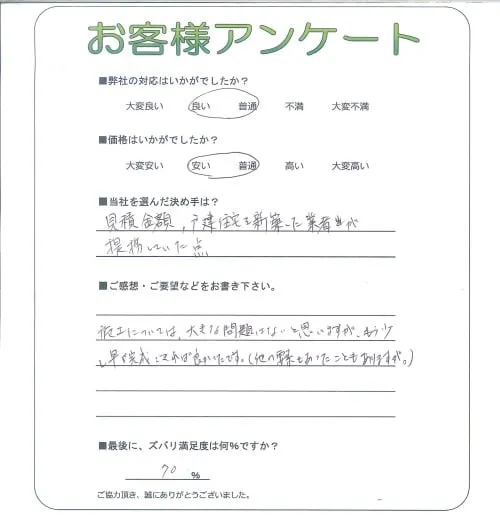 お客様アンケート
■弊社の対応はいかがでしたか？
大変良い 良い 普通 不満 大変不満
■価格はいかがでしたか？
大変安い 安い 普通 高い 大変高い
■当社を選んだ決め手は？
見積金額，戸建住宅を新築した業者が
提携していた点
■ご感想・ご要望などをお書き下さい。
施工については，大きな問題はないと思いますが，もう少
し早く完成すれば良かったです。(他の要素もあったこともありますが。)
■最後に、ズバリ満足度は何%ですか？
70 %
ご協力頂き、誠にありがとうございました。